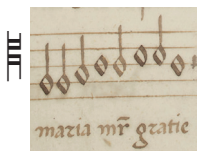 maria mr̄ gratie